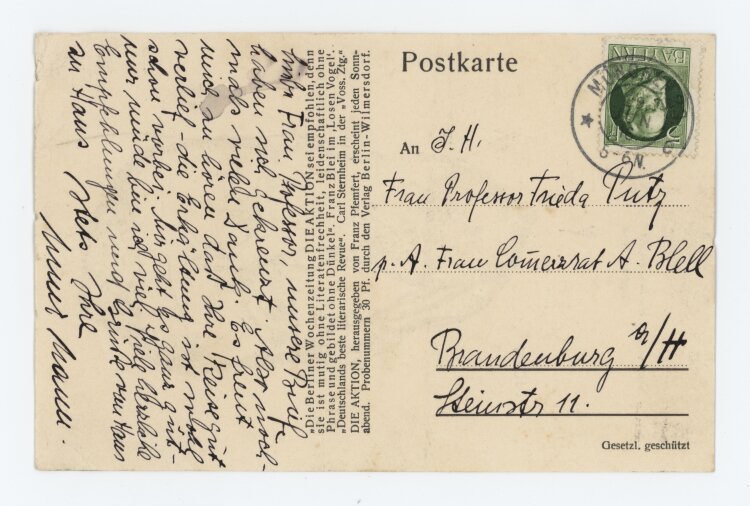 Postkarte
BAYERN
MÜNCHEN
5-6 N.
An J. H.
Frau Professor Frieda Putz
p. A. Frau Comerzrat A. Blell
Brandenburg a/H
Steinstr 11.
Gesetzl. geschützt
„Die Berliner Wochenzeitung DIE AKTION sei empfohlen, denn
sie ist mutig ohne Literatenfrechheit, leidenschaftlich ohne
Phrase und gebildet ohne Dünkel“. Franz Blei im „Losen Vogel“.
„Deutschlands beste literarische Revue“. Carl Sternheim in der „Voss. Ztg.“
DIE AKTION, herausgegeben von Franz Pfemfert, erscheint jeden Sonn-
abend. Probenummern 30 Pf. durch den Verlag Berlin-Wilmersdorf.
Frau Professor, unsere Briefe
haben sich gekreuzt. Also noch-
mals vielen Dank. Es freut
mich zu hören daß Ihre Reise gut
verlief - die Erkältung ist wohl
schon vorbei. Mir geht es ganz gut -
nur müde bin ich viel. Viel herzliche
Empfehlungen und Grüße von Haus
zu Haus stets Ihre